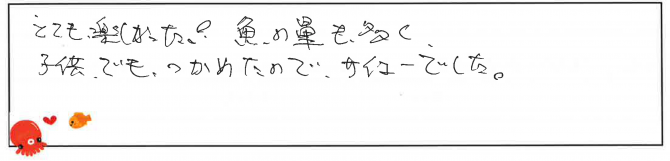 とても楽しかった。魚の量も多く、
子供でも、つかめたので、サイコーでした。